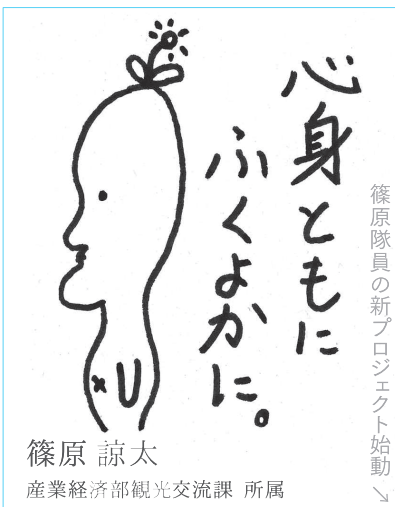 心身ともに
ふくよかに。
篠原隊員の新プロジェクト始動↘
篠原 諒太
産業経済部観光交流課 所属